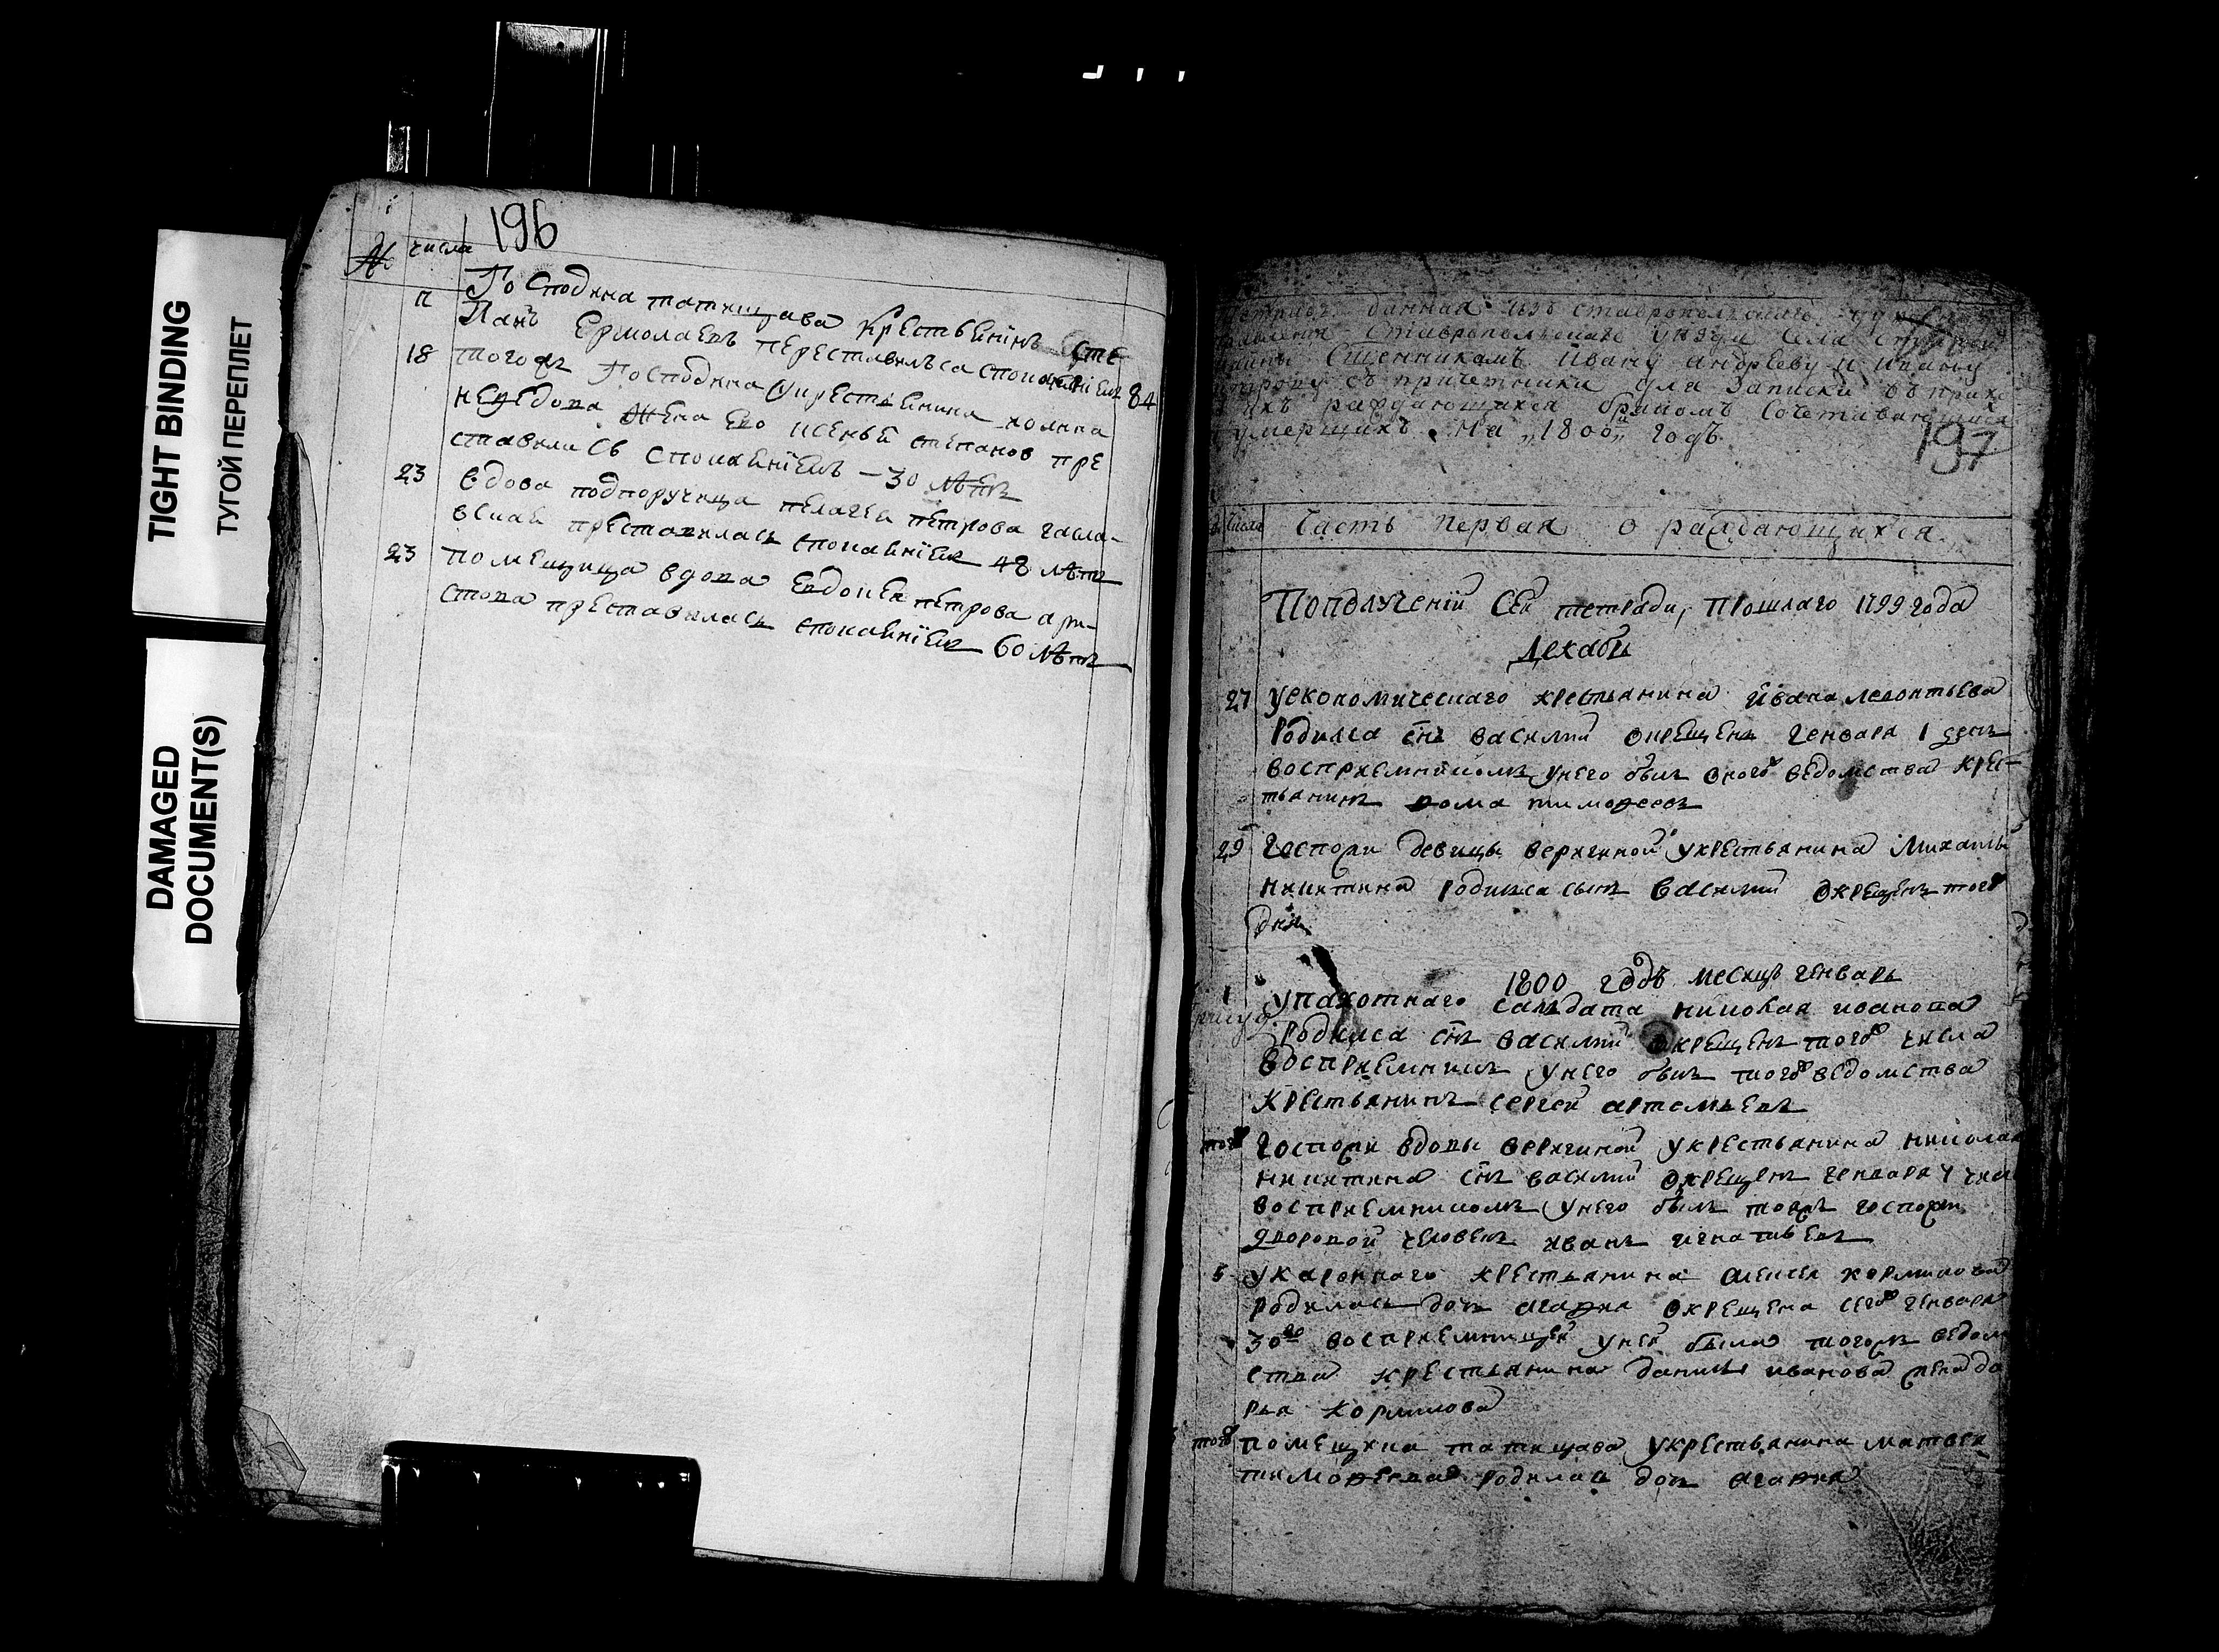 TIGHT BINDING
ТУГОЙ ПЕРЕПЛЕТ
DAMAGED
DOCUMENT(S)
196
№ числа
Господина татищава крестьенинъ Сте
п панъ Ермолаевъ переставилъса спокаенiемъ 84
18 тогожъ Господина крестьенина
жена его ксеньѣ степанов пре
ставилисѣ спокаенiемъ – 30 лѣтъ
23 вдова подпоручица пелагеѣ петрова
преставиласъ спокаенiемъ 48 лѣтъ
23 помещица вдова Евдокеѣ петрова ари-
стова преставиласъ спокаенiемъ 60 лѣтъ
данная изъ ставропольскаго
Ставропольскаго уезда села
Сщенникамъ Ивану андрѣеву и ивану
съ причетники для записки въ прихо
раждающихся бракомъ сочетавающихся
умерщихъ на „1800„ годъ
197
числа Часть первая о раждающихся
Пополученiй Сей тетради, прошлаго 1799 года
Декабрь
27 уекономическаго крестьянина йвана леонтьева
родилса снъ василий окрещенъ генваря 1 дня
восприемникомъ унего былъ оного ведомства крес-
тьянинъ фома тимофеевъ
29 госпожи девицы веригиной укрестьянина Михаилы
никитина родилса сынъ василий окрещенъ того
дня
1800 годъ месяцъ генварь
1 упахотнаго салъдата николая иванова
родилса снъ василий окрещенъ того числа
восприемникъ унего былъ того ведомства
крестьянинъ сергей артемьевъ
того госпожи вдовы веригиной укрестьянина николая
никитина снъ василий окрещенъ генваря 4 числ
восприемникомъ унего былъ тоежъ госпожи
дворовой человекъ иванъ игнатьевъ
5 укаронного крестьянина алексея кормилова
родиласъ дочь агафия окрещена сего генваря
30го восприемницей уней была тогожъ ведом
ства крестьянина данилы иванова жена да
рья кормилова
того помещика татищава укрестьянина матвея
тимофеева родилась дочь агафия